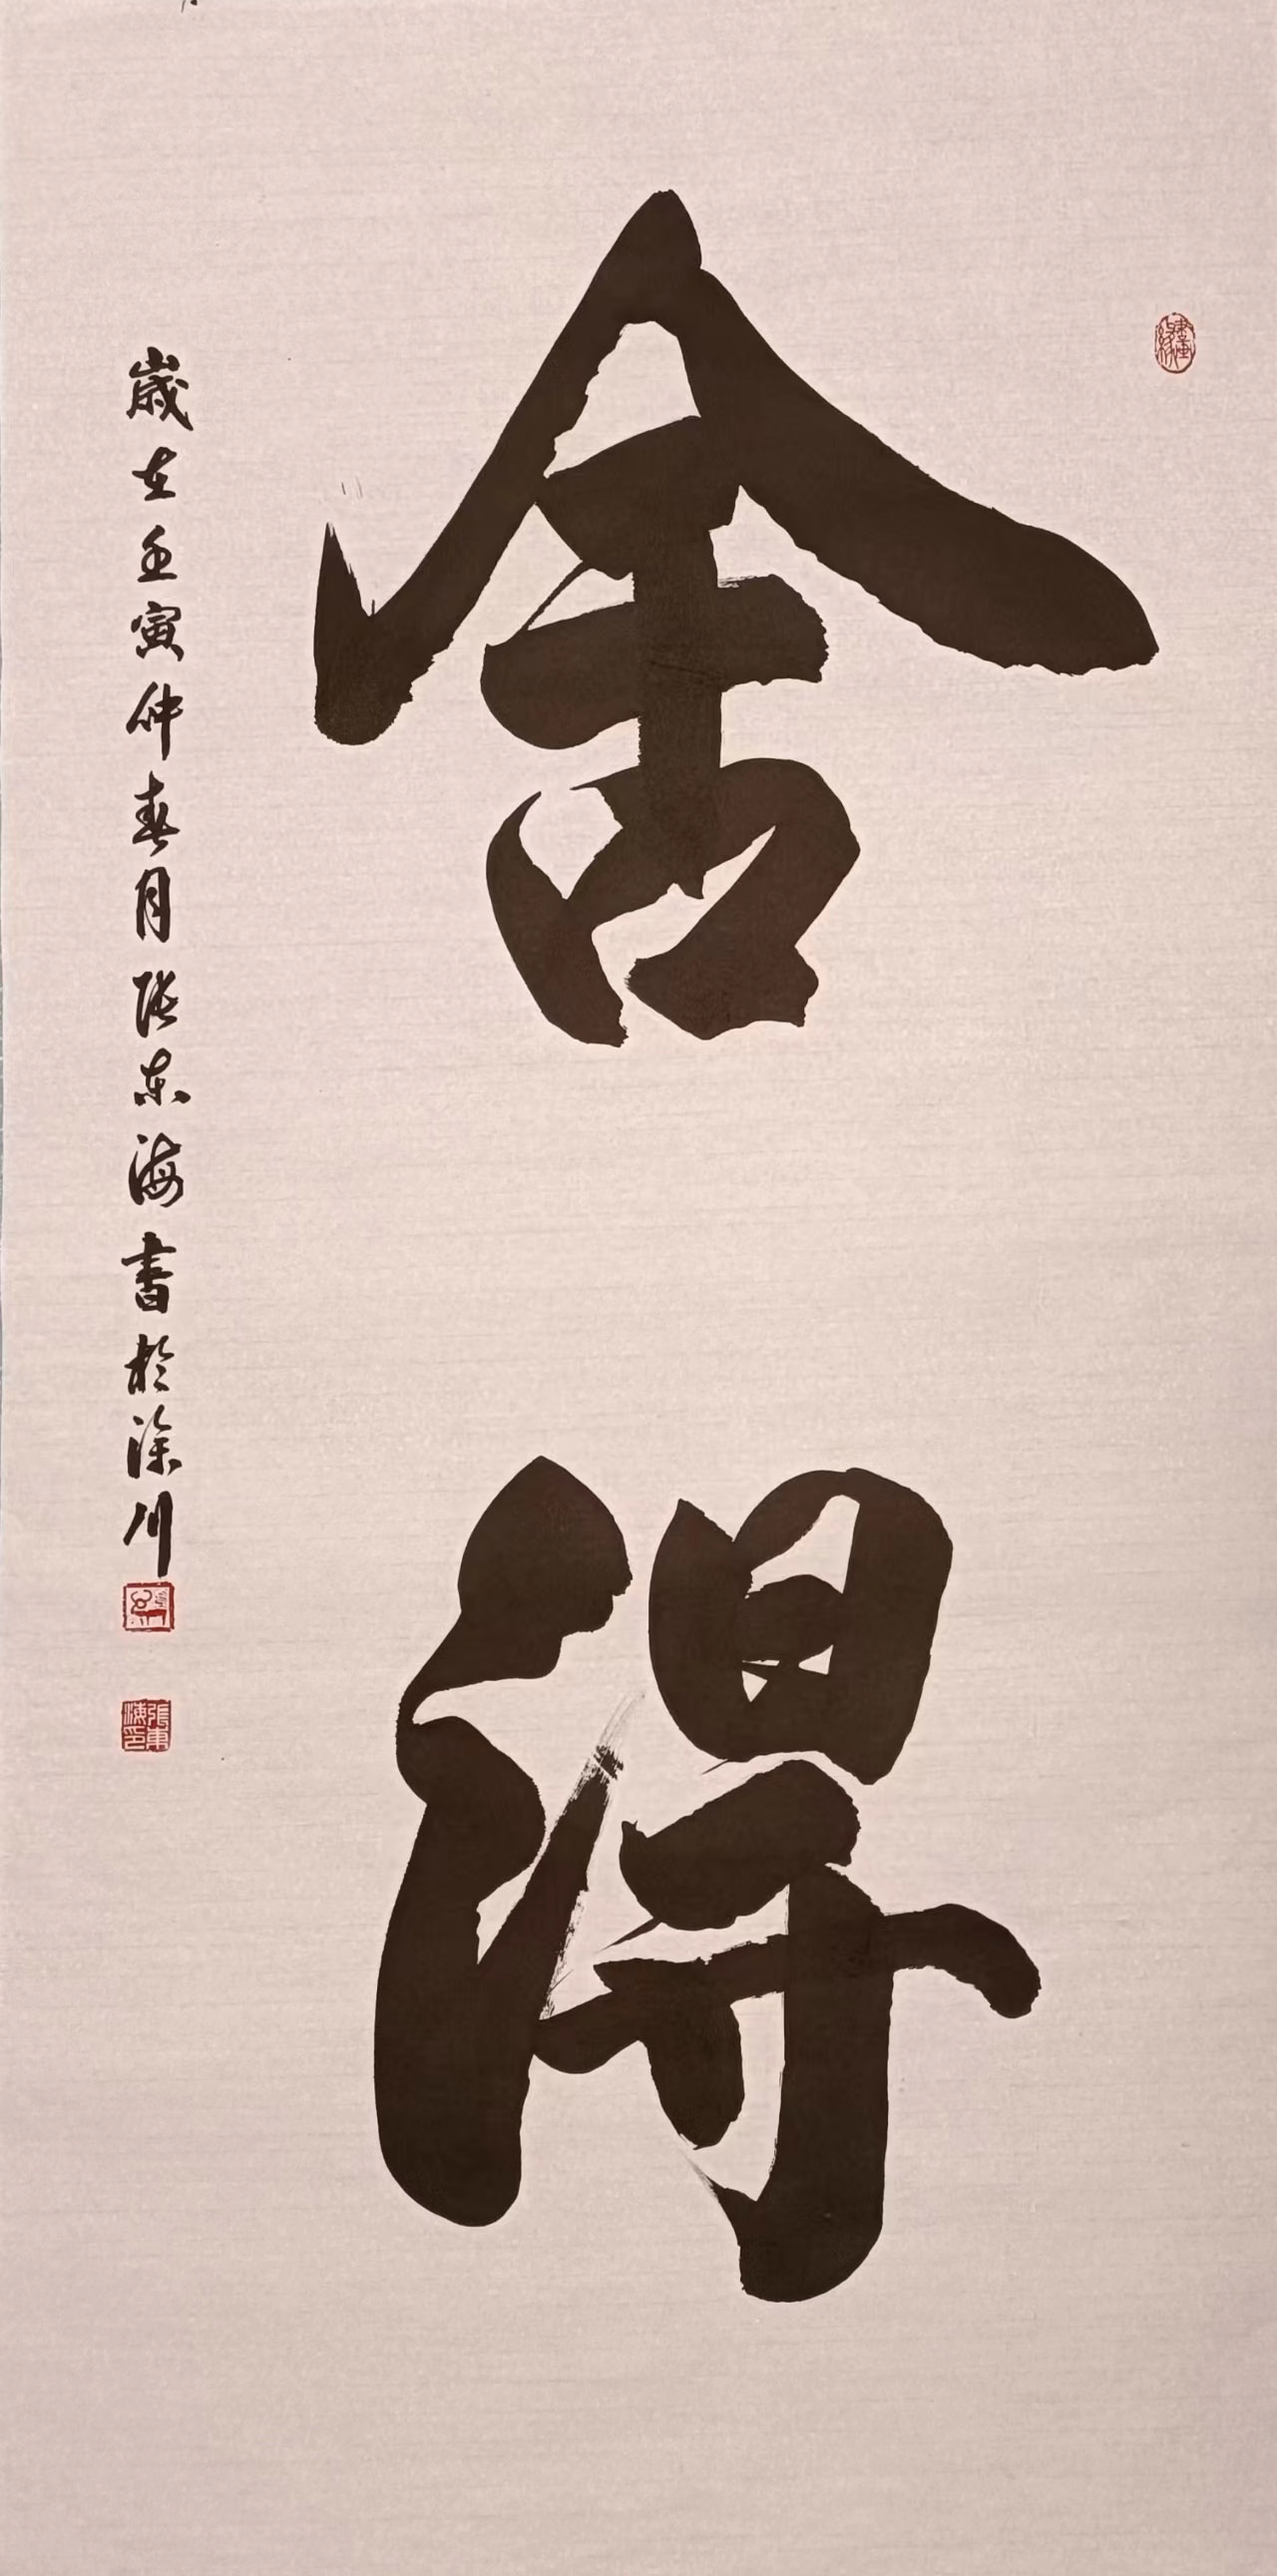 舍
得
歲在壬寅仲春月張东海書於滁川
張東海印